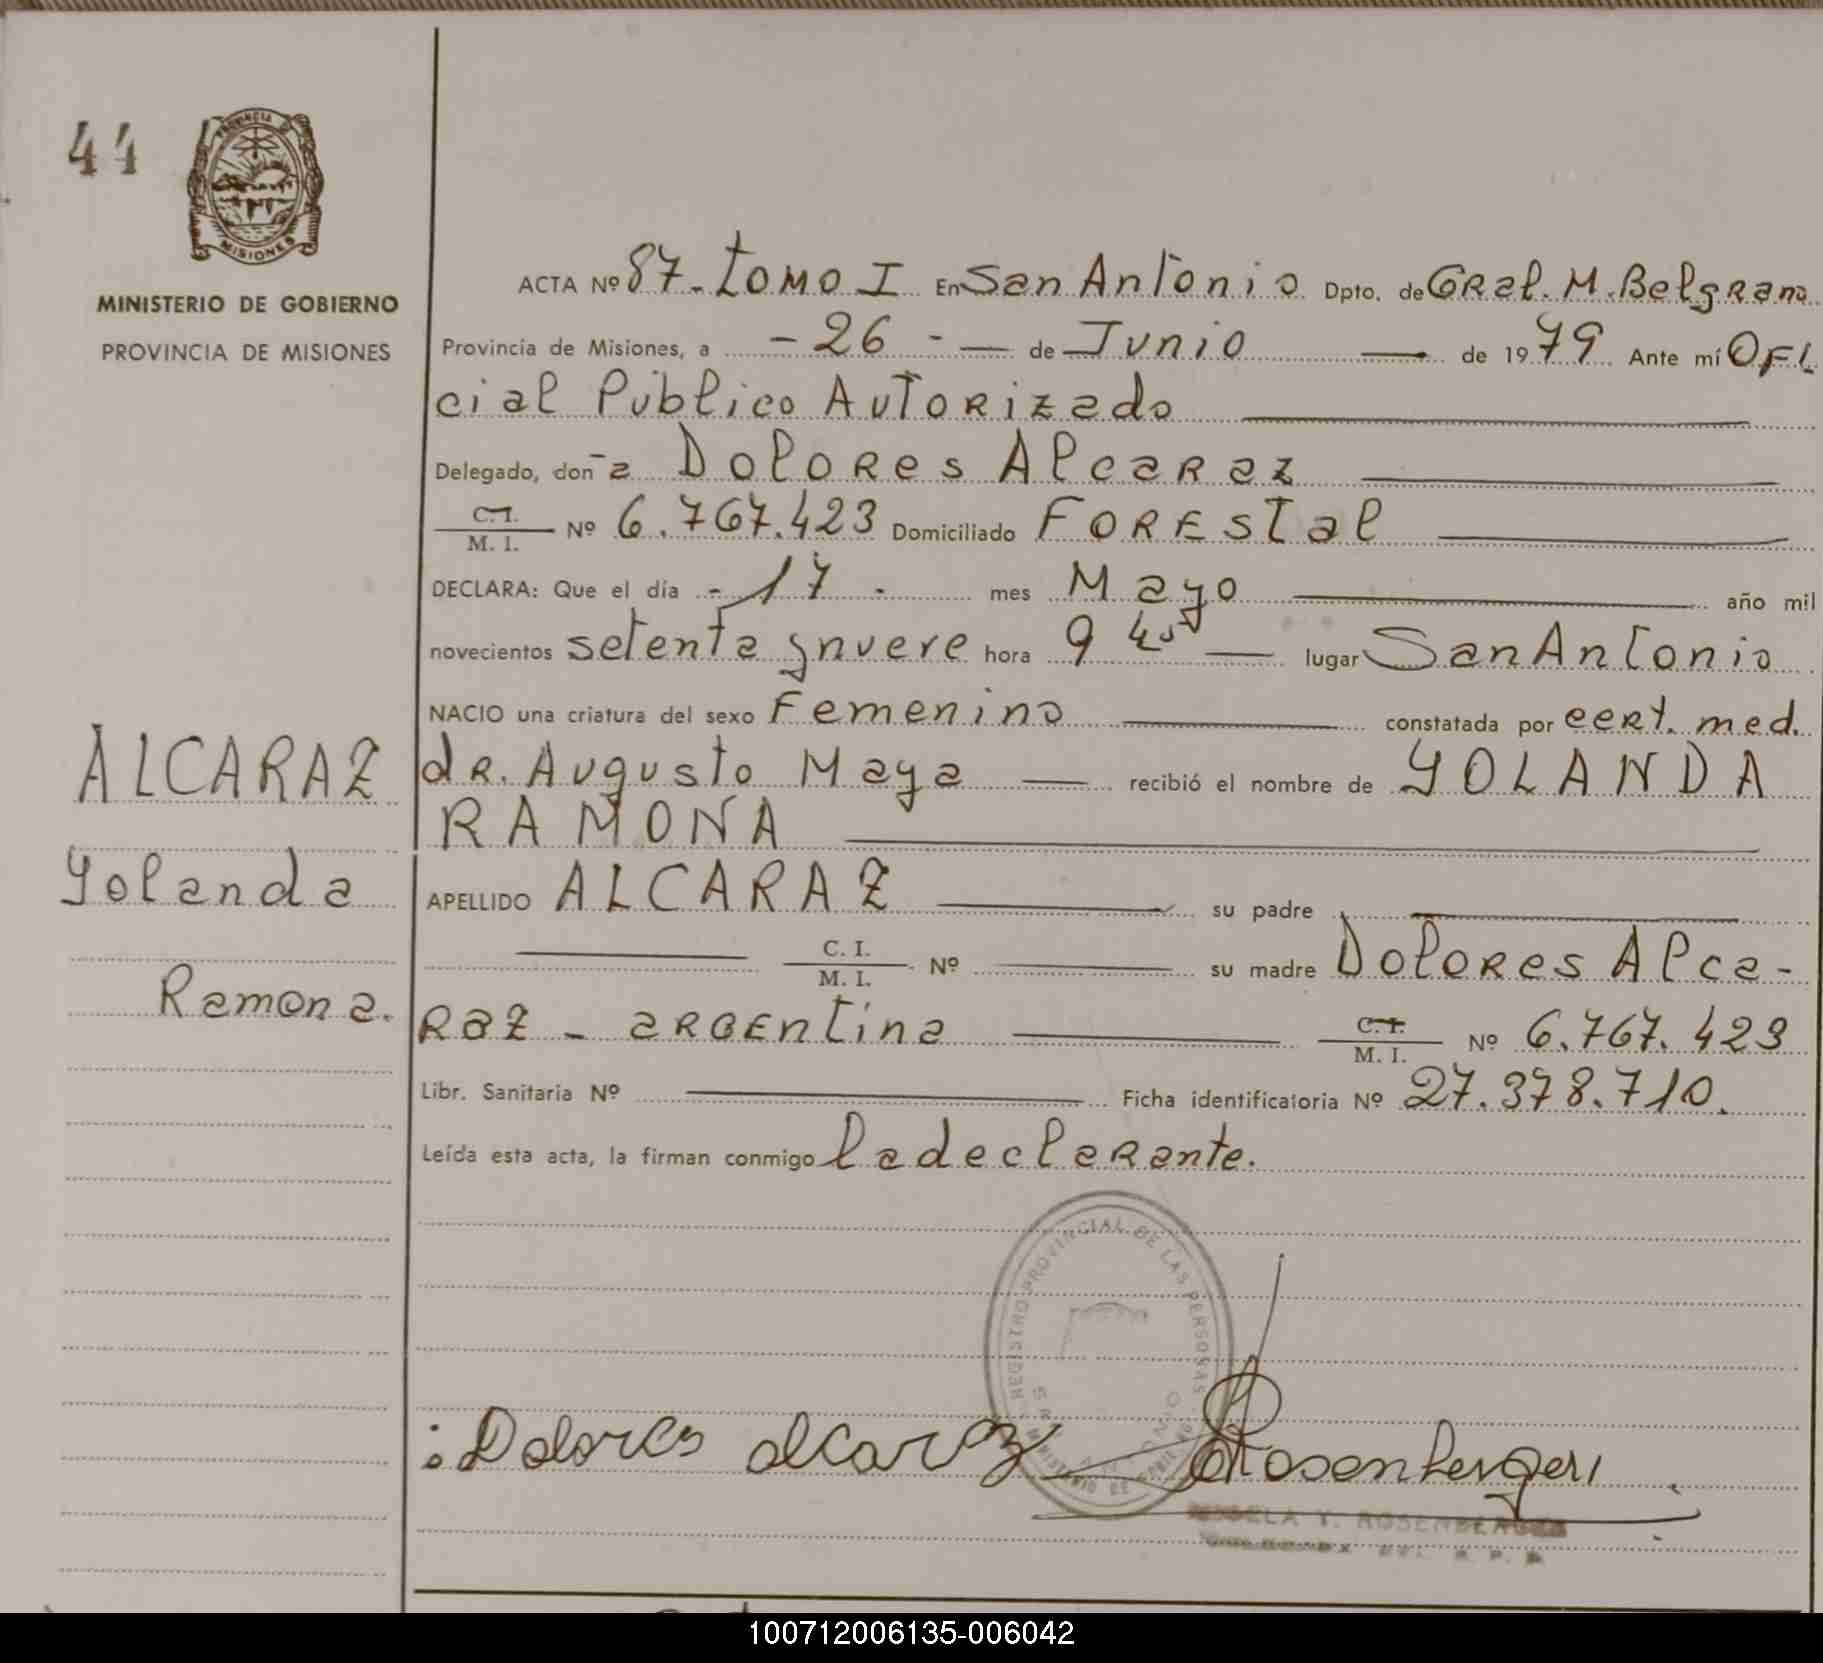 44
PROVINCIA DE
MISIONES
MINISTERIO DE GOBIERNO
PROVINCIA DE MISIONES
ACTA Nº 87-tomo I En San Antonio Dpto. de GRal. M. Belgrano
Provincia de Misiones, a -26- — de Junio — de 1979 Ante mí OFI
cial Público Autorizado
Delegado, don-a Dolores Alcaraz
C.I. / M. I. Nº 6.767.423 Domiciliado Forestal
DECLARA: Que el día -17- mes Mayo año mil
novecientos setenta y nueve hora 9 45 — lugar San Antonio
NACIO una criatura del sexo Femenino constatada por cert. med.
dr. Augusto Maya — recibió el nombre de YOLANDA
RAMONA
APELLIDO ALCARAZ su padre
C. I. / M. I. Nº su madre Dolores Alca-
raz - argentina C. I. / M. I. Nº 6.767.423
Libr. Sanitaria Nº Ficha identificatoria Nº 27.378.710.
Leída esta acta, la firman conmigo la declarante.
ALCARAZ
Yolanda
Ramona.
REGISTRO PROVINCIAL DE LAS PERSONAS
MINISTERIO DE
: Dolores alcaraz
Rosenberger
Y. ROSENBERGER
100712006135-006042